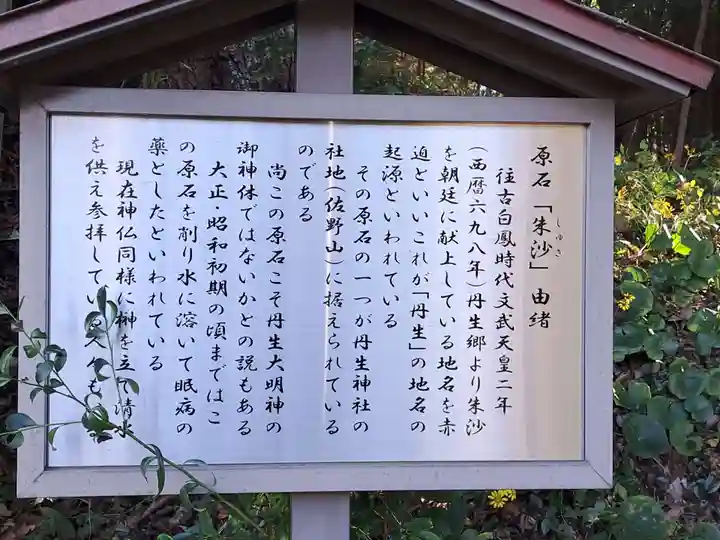 原石「朱沙」由緒
しゅさ
往古白鳳時代文武天皇二年
(西暦六九八年)丹生郷より朱沙
を朝廷に献上している地名を赤
迫といいこれが「丹生」の地名の
起源といわれている
その原石の一つが丹生神社の
社地(佐野山)に据えられている
のである
尚この原石こそ丹生大明神の
御神体ではないかとの説もある
大正・昭和初期の頃まではこ
の原石を削り水に溶いて眠病の
薬としたといわれている
現在神仏同様に榊を立て清水
を供え参拝している人々も